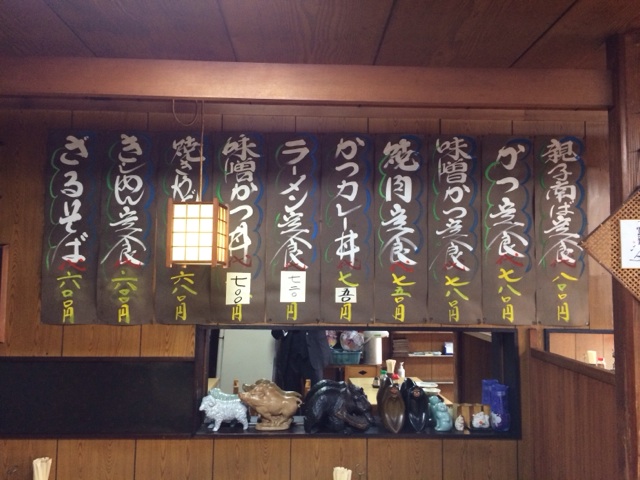 親子南は定食 八〇〇円
かつ定食 七八〇円
味噌かつ定食 七八〇円
焼肉定食 七五〇円
かつカレー丼 七五〇円
ラーメン定食 七二〇円
味噌かつ丼 七〇〇円
焼き 六八〇円
きしめん定食 六〇〇円
ざるそば 六〇〇円